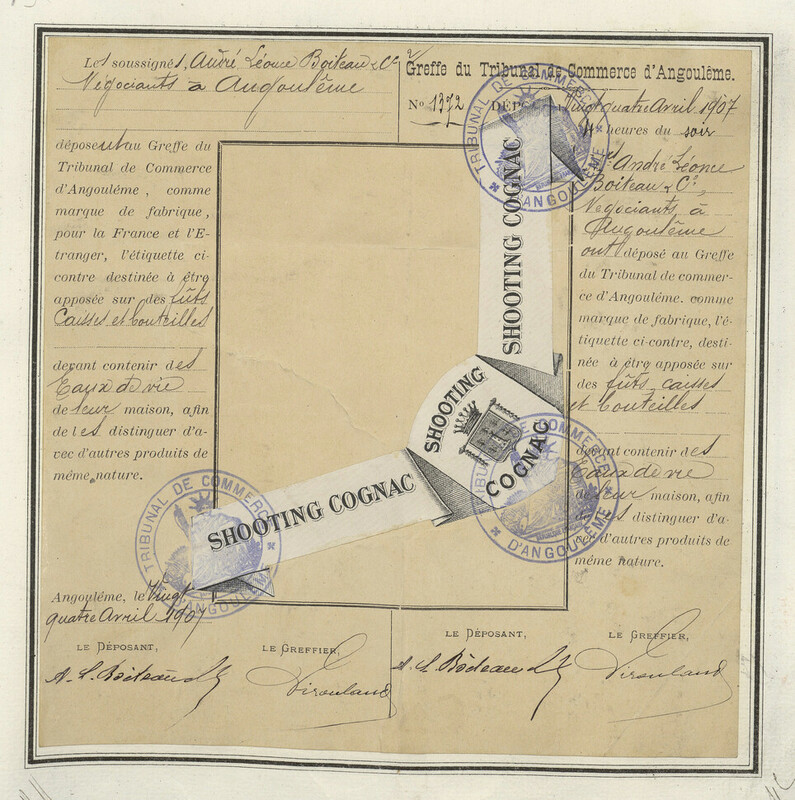 Les soussignés, André Léonce Boiteau & Cie
Négociants à Angoulême
déposent au Greffe du
Tribunal de Commerce
d'Angoulême, comme
marque de fabrique,
pour la France et l'E-
tranger, l'étiquette ci-
contre destinée à être
apposée sur des fûts
Caisses et bouteilles
devant contenir des
Eaux de vie
de leur maison, afin
de les distinguer d'a-
vec d'autres produits de
même nature.
Angoulême, le Vingt
quatre Avril 1907
LE DÉPOSANT,
LE GREFFIER,
A. L. Boiteau
Greffe du Tribunal de Commerce d'Angoulême.
No 1372 DÉPOT Vingt quatre Avril 1907
4 heures du soir
André Léonce
Boiteau & Cie,
Négociants à
Angoulême
ont déposé au Greffe
du Tribunal de commer-
ce d'Angoulême. comme
marque de fabrique, l'é-
tiquette ci-contre, desti-
née à être apposée sur
des fûts caisses
et bouteilles
devant contenir des
Eaux de vie
de leur maison, afin
de les distinguer d'a-
vec d'autres produits de
même nature.
LE DÉPOSANT,
LE GREFFIER,
A. L. Boiteau
SHOOTING COGNAC
SHOOTING
COGNAC
SHOOTING COGNAC
TRIBUNAL DE COMMERCE
D'ANGOULÊME
TRIBUNAL DE COMMERCE
D'ANGOULÊME
TRIBUNAL DE COMMERCE
D'ANGOULÊME